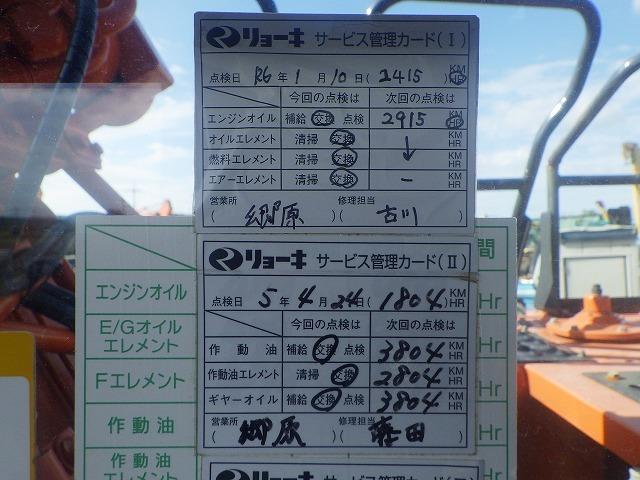 リョーキ サービス管理カード(Ⅰ)
点検日 R6年 1月 10日(2415)KM HR
今回の点検は 次回の点検は
エンジンオイル 補給 交換 点検 2915 KM HR
オイルエレメント 清掃 交換 ↓ KM HR
燃料エレメント 清掃 交換 KM HR
エアーエレメント 清掃 交換 － KM HR
営業所 修理担当
(郷原)(古川)
リョーキ サービス管理カード(Ⅱ)
点検日 5年 4月 24日(1804)KM HR
今回の点検は 次回の点検は
作動油 補給 交換 点検 3804 KM HR
作動油エレメント 清掃 交換 2804 KM HR
ギヤーオイル 補給 交換 点検 3804 KM HR
営業所 修理担当
(郷原)( 田)
リョーキ サービス管理カード
間
エンジンオイル Hr
E/Gオイル
エレメント Hr
Fエレメント Hr
作動油 Hr
作動油
エレメント Hr